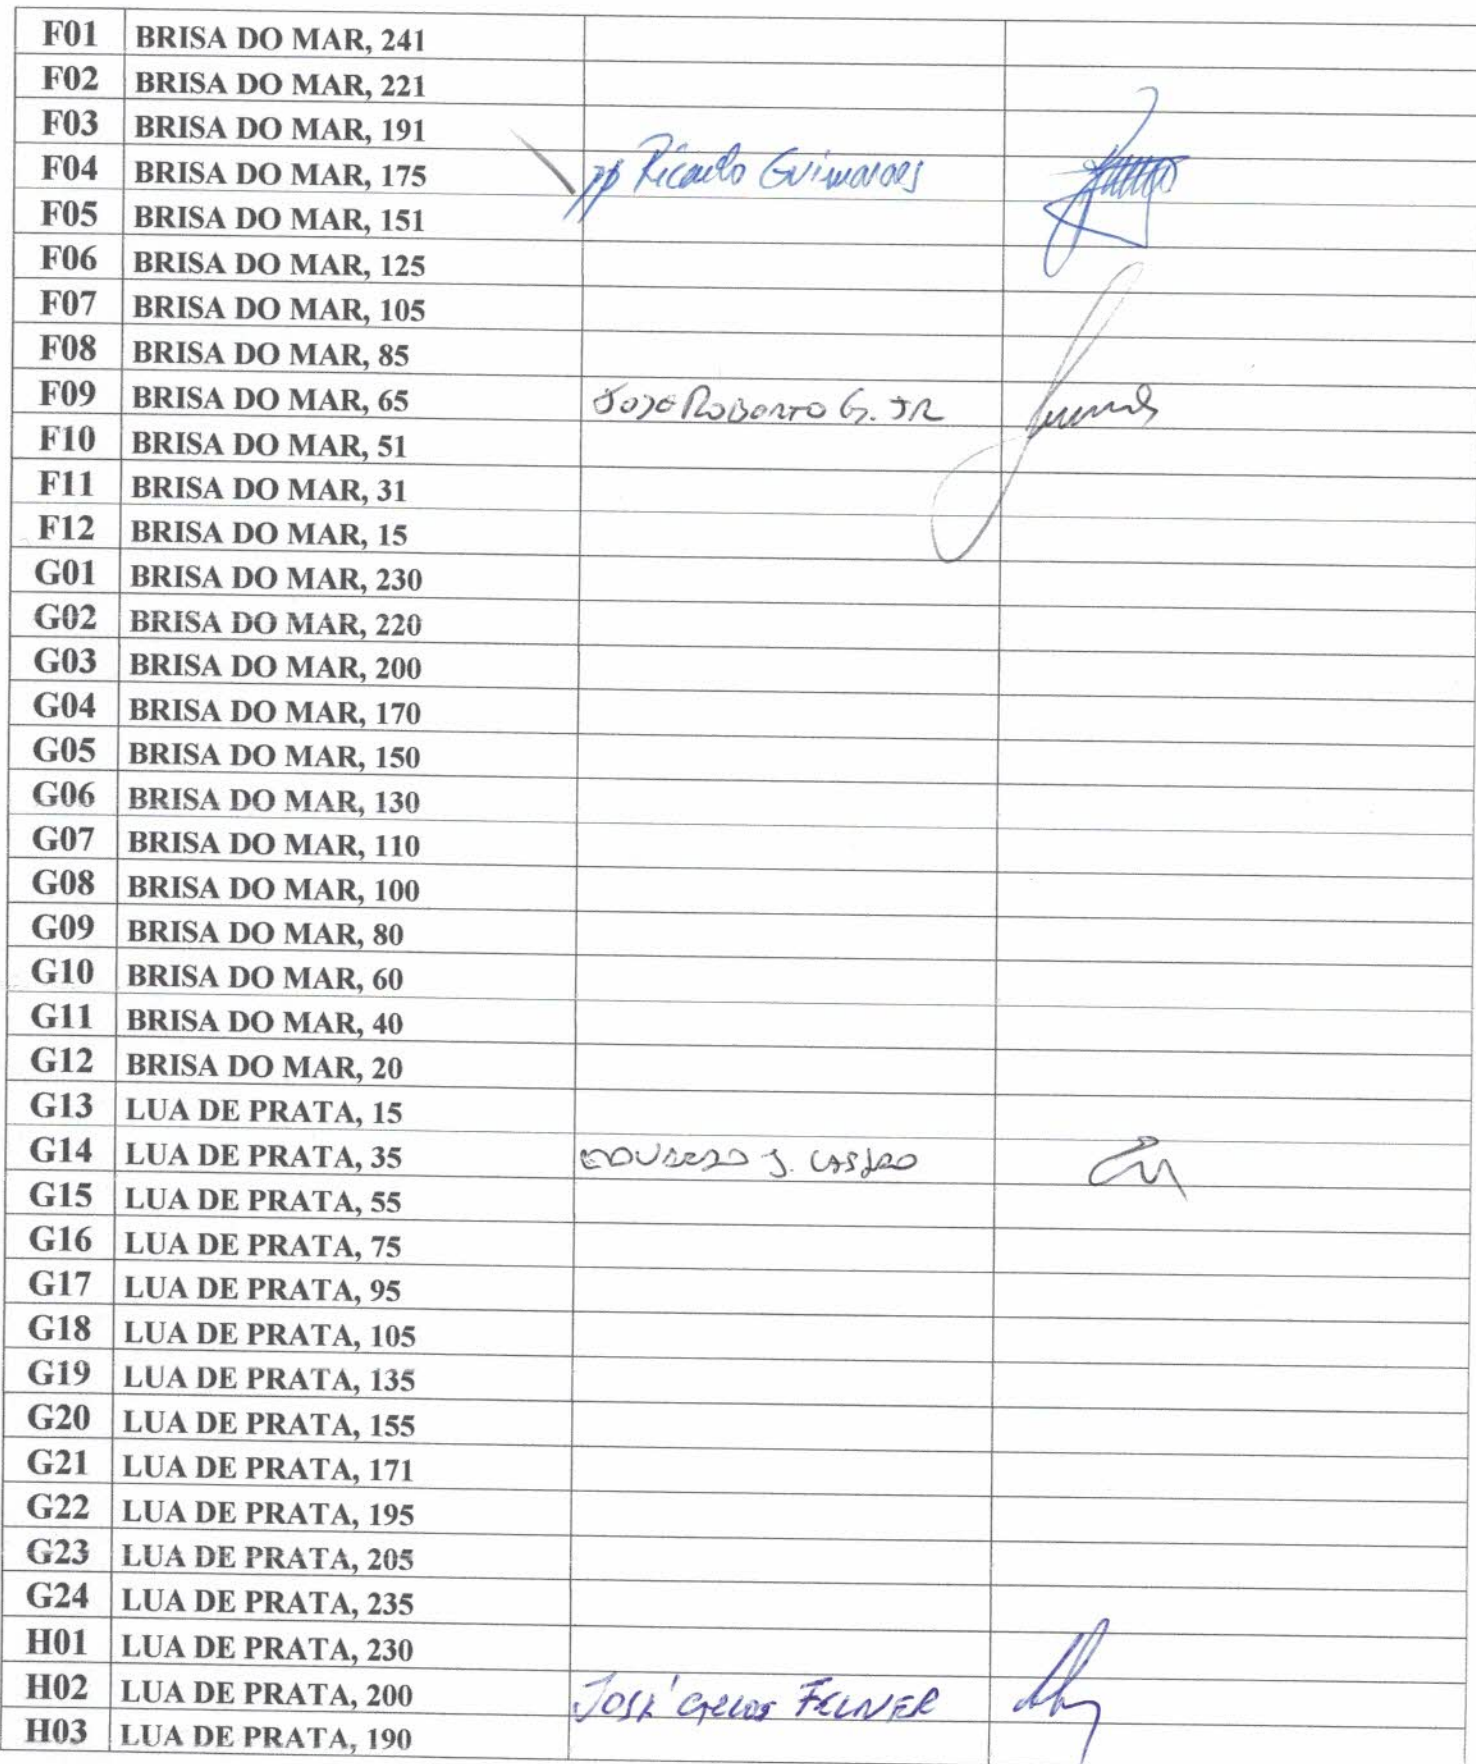 F01 BRISA DO MAR, 241
F02 BRISA DO MAR, 221
F03 BRISA DO MAR, 191
F04 BRISA DO MAR, 175 pp Ricardo Guimaraes
F05 BRISA DO MAR, 151
F06 BRISA DO MAR, 125
F07 BRISA DO MAR, 105
F08 BRISA DO MAR, 85
F09 BRISA DO MAR, 65 JOSE ROBERTO G. JR
F10 BRISA DO MAR, 51
F11 BRISA DO MAR, 31
F12 BRISA DO MAR, 15
G01 BRISA DO MAR, 230
G02 BRISA DO MAR, 220
G03 BRISA DO MAR, 200
G04 BRISA DO MAR, 170
G05 BRISA DO MAR, 150
G06 BRISA DO MAR, 130
G07 BRISA DO MAR, 110
G08 BRISA DO MAR, 100
G09 BRISA DO MAR, 80
G10 BRISA DO MAR, 60
G11 BRISA DO MAR, 40
G12 BRISA DO MAR, 20
G13 LUA DE PRATA, 15
G14 LUA DE PRATA, 35 J. CASTRO
G15 LUA DE PRATA, 55
G16 LUA DE PRATA, 75
G17 LUA DE PRATA, 95
G18 LUA DE PRATA, 105
G19 LUA DE PRATA, 135
G20 LUA DE PRATA, 155
G21 LUA DE PRATA, 171
G22 LUA DE PRATA, 195
G23 LUA DE PRATA, 205
G24 LUA DE PRATA, 235
H01 LUA DE PRATA, 230
H02 LUA DE PRATA, 200 JOSÉ CARLOS
H03 LUA DE PRATA, 190